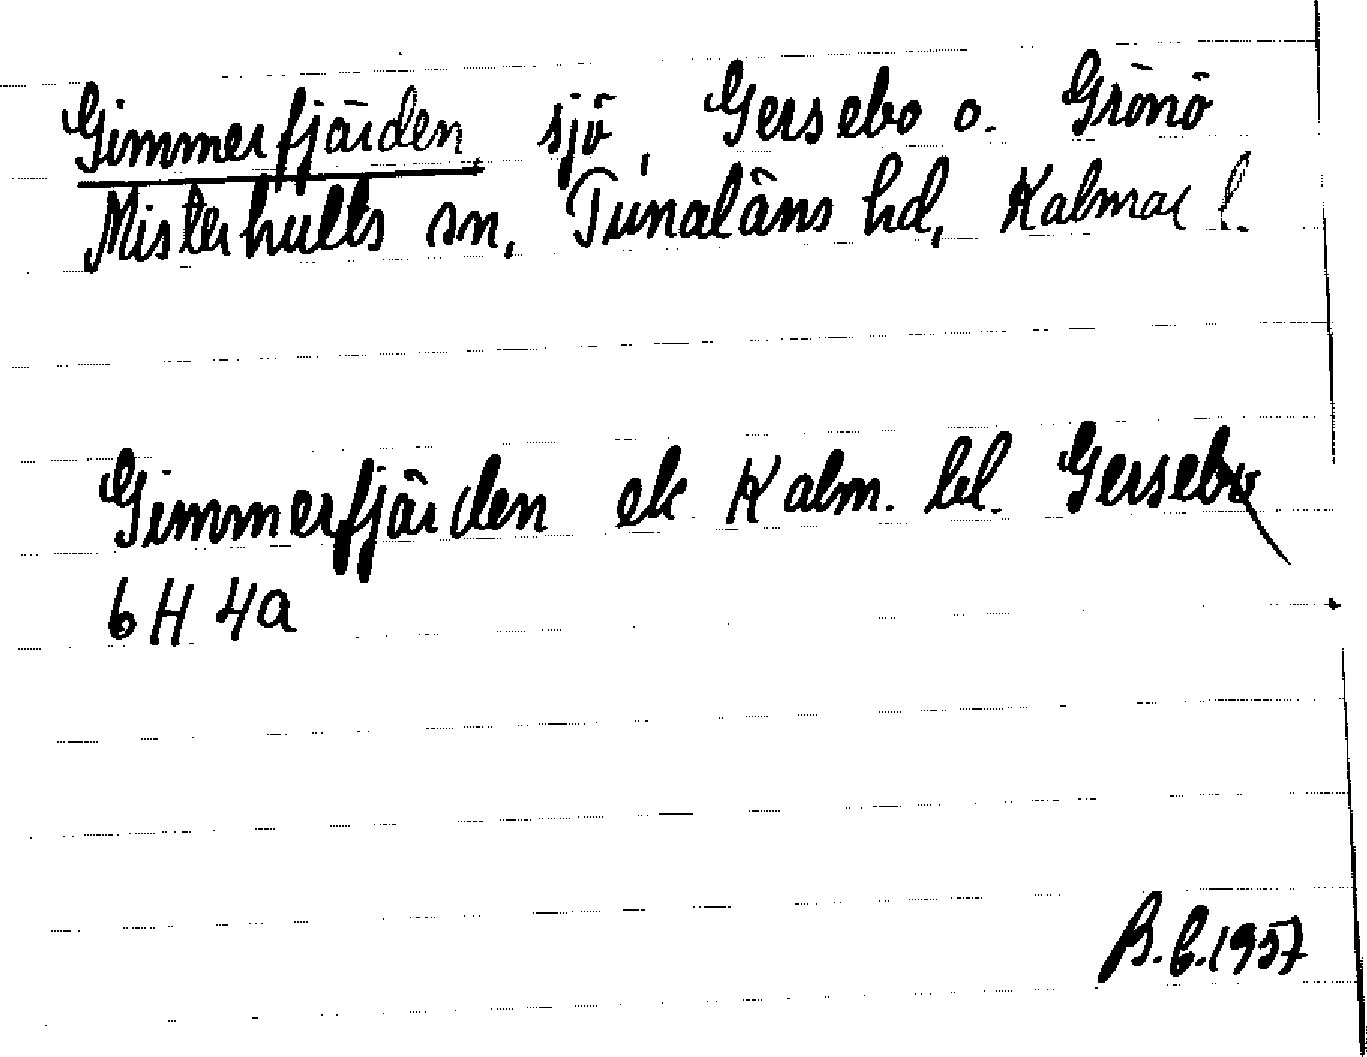 Gimmerfjärden, sjö, Gersebo o. Grönö
Misterhults sn, Tunaläns hd, Kalmar l.
Gimmerfjärden ek Kalm. bl. Gersebo
6H 4a
B.E.1957